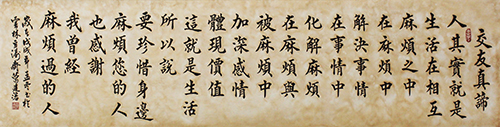 交友真諦
人其實就是
生活在相互
麻煩之中
解決事情
在事情中
化解麻煩
在麻煩與
被麻煩中
加深感情
體現價值
這就是生活
所以說
要珍惜身邊
麻煩您的人
也感謝
我曾經
麻煩過的人
歲次戊戌年孟冬書於
雲林